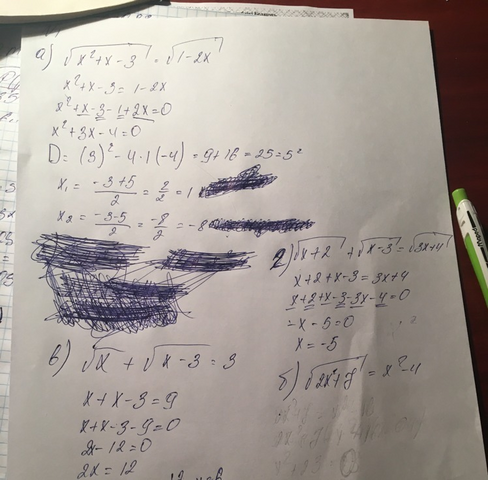 а) √x²+x-3 = √1-2x
x²+x-3=1-2x
x²+x-3-1+2x=0
x²+3x-4=0
D=(3)²-4·1(-4)=9+16=25=5²
x₁=(-3+5)/2=2/2=1
x₂=(-3-5)/2=-8/2=-8
2) √x+2 + √x-3 = √3x+4
x+2+x-3=3x+4
x+2+x-3-3x-4=0
-x-5=0
x=-5
в) √x + √x-3 = 3
x+x-3=9
x+x-3-9=0
2x-12=0
2x=12
б) √2x²+7 = x²-4